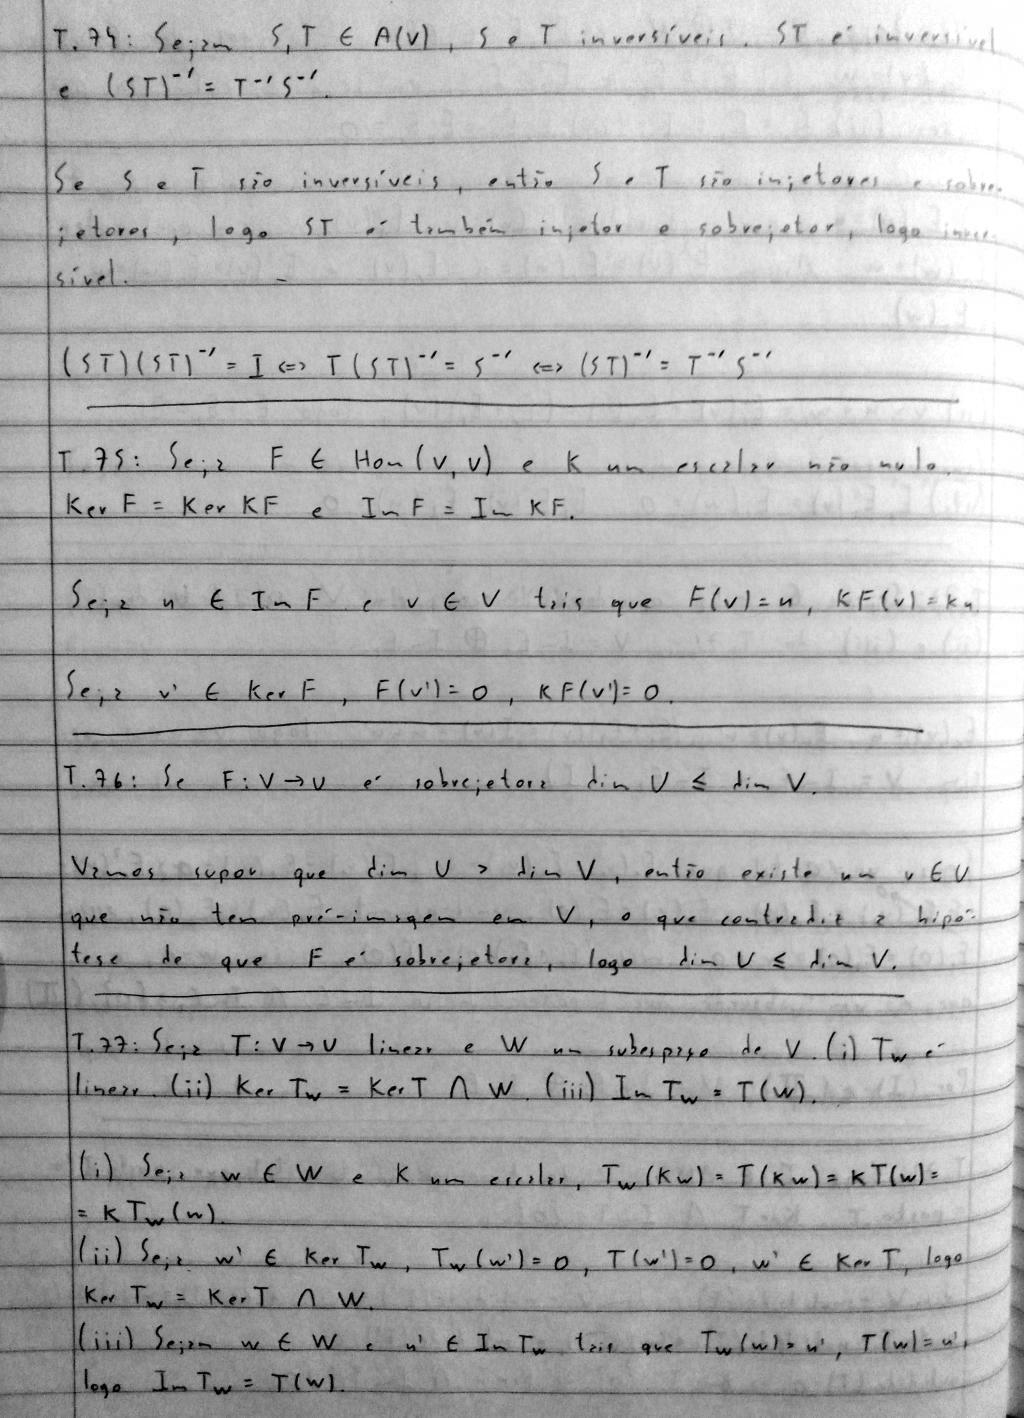 T.74: Sejam S, T ∈ A(V), S e T inversíveis. ST é inversível
e (ST)⁻¹ = T⁻¹S⁻¹.
Se S e T são inversíveis, então S e T são injetores e sobre-
jetores, logo ST é também injetor e sobrejetor, logo inver-
sível.
(ST)(ST)⁻¹ = I <=> T(ST)⁻¹ = S⁻¹ <=> (ST)⁻¹ = T⁻¹S⁻¹
T.75: Seja F ∈ Hom(V, U) e K um escalar não nulo.
Ker F = Ker KF e Im F = Im KF.
Seja u ∈ Im F e v ∈ V tais que F(v) = u, KF(v) = ku.
Seja v' ∈ Ker F, F(v') = 0, KF(v') = 0.
T.76: Se F: V → U é sobrejetora dim U ≤ dim V.
Vamos supor que dim U > dim V, então existe um v ∈ U
que não tem pré-imagem em V, o que contradiz a hipó-
tese de que F é sobrejetora, logo dim U ≤ dim V.
T.77: Seja T: V → U linear e W um subespaço de V. (i) Tw é
linear. (ii) Ker Tw = Ker T ∩ W. (iii) Im Tw = T(W).
(i) Seja w ∈ W e K um escalar, Tw(Kw) = T(Kw) = KT(w) =
= KTw(w).
(ii) Seja w' ∈ Ker Tw, Tw(w') = 0, T(w') = 0, w' ∈ Ker T, logo
Ker Tw = Ker T ∩ W.
(iii) Sejam w ∈ W e u' ∈ Im Tw tais que Tw(w) = u', T(w) = u',
logo Im Tw = T(W).